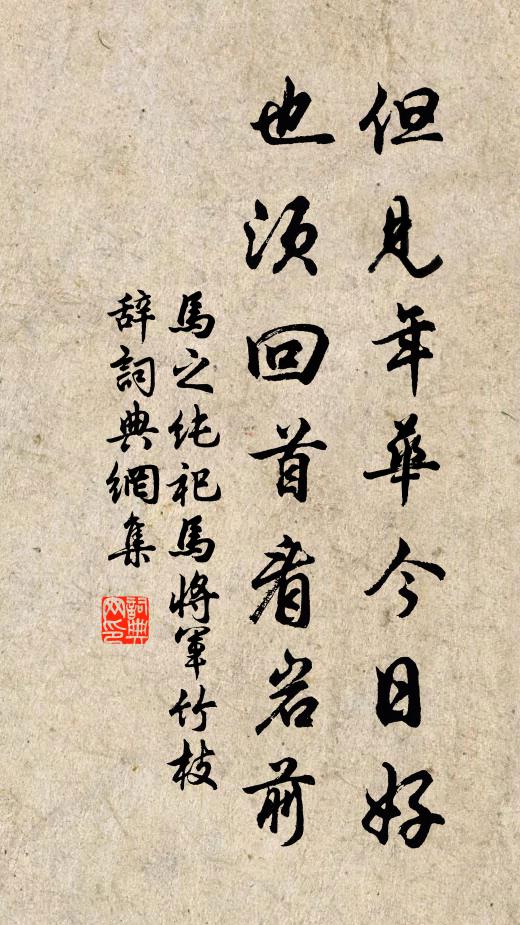 但見年華今日好
也須回首看岩前
馬之純祀馬將軍竹枝
辞詞典網集
詞典网印